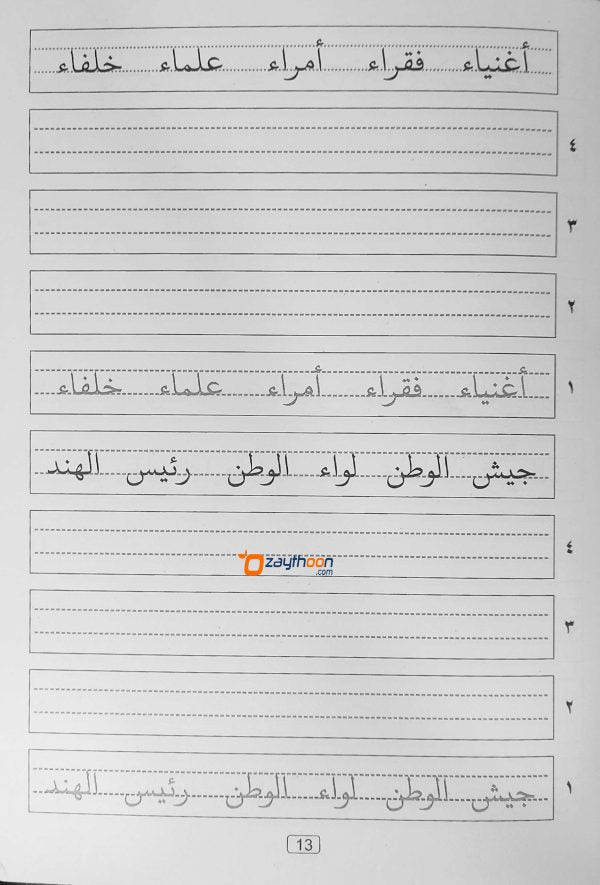 أغنياء فقراء أمراء علماء خلفاء
٤
٣
٢
١ أغنياء فقراء أمراء علماء خلفاء
جيش الوطن لواء الوطن رئيس الهند
٤
zaythoon
.com
٣
٢
١ جيش الوطن لواء الوطن رئيس الهند
13